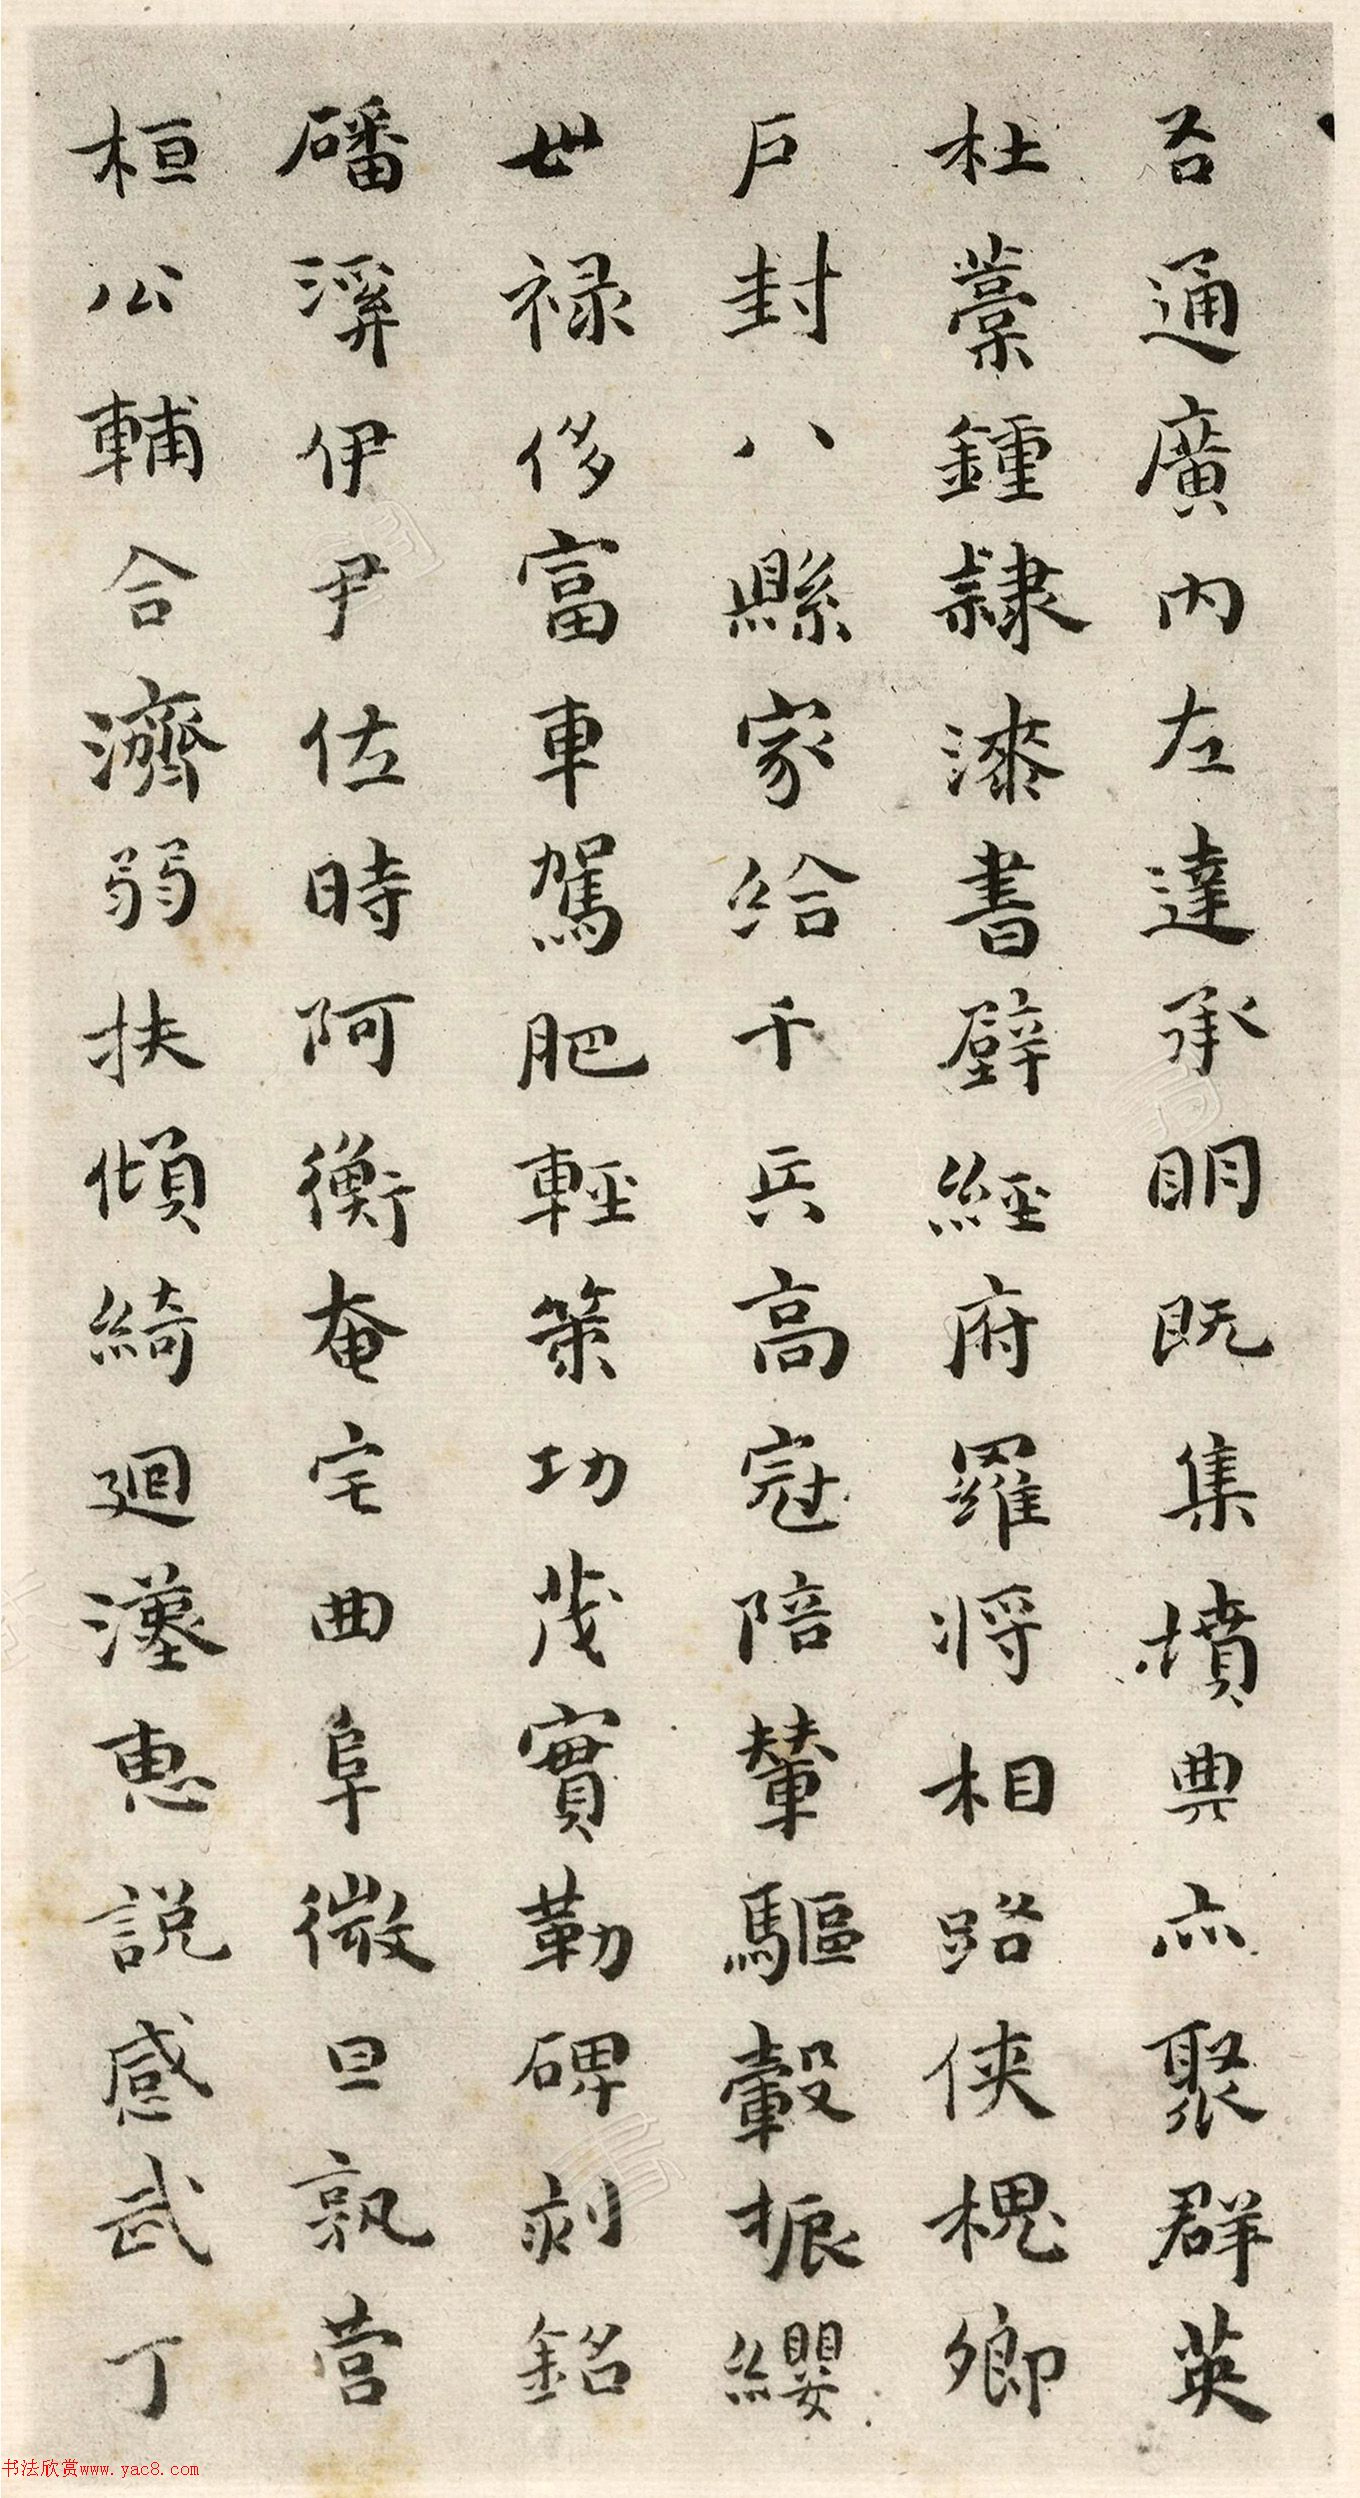 吾通廣內左達承明既集墳典亦聚群英
杜藁鍾隸漆書壁經府羅將相路俠槐卿
戶封八縣家給千兵高冠陪輦驅轂振纓
世禄侈富車駕肥輕策功茂實勒碑刻銘
磻溪伊尹佐時阿衡奄宅曲阜微旦孰營
桓公輔合濟弱扶傾綺迴漢惠説感武丁
书法欣赏www.yac8.com